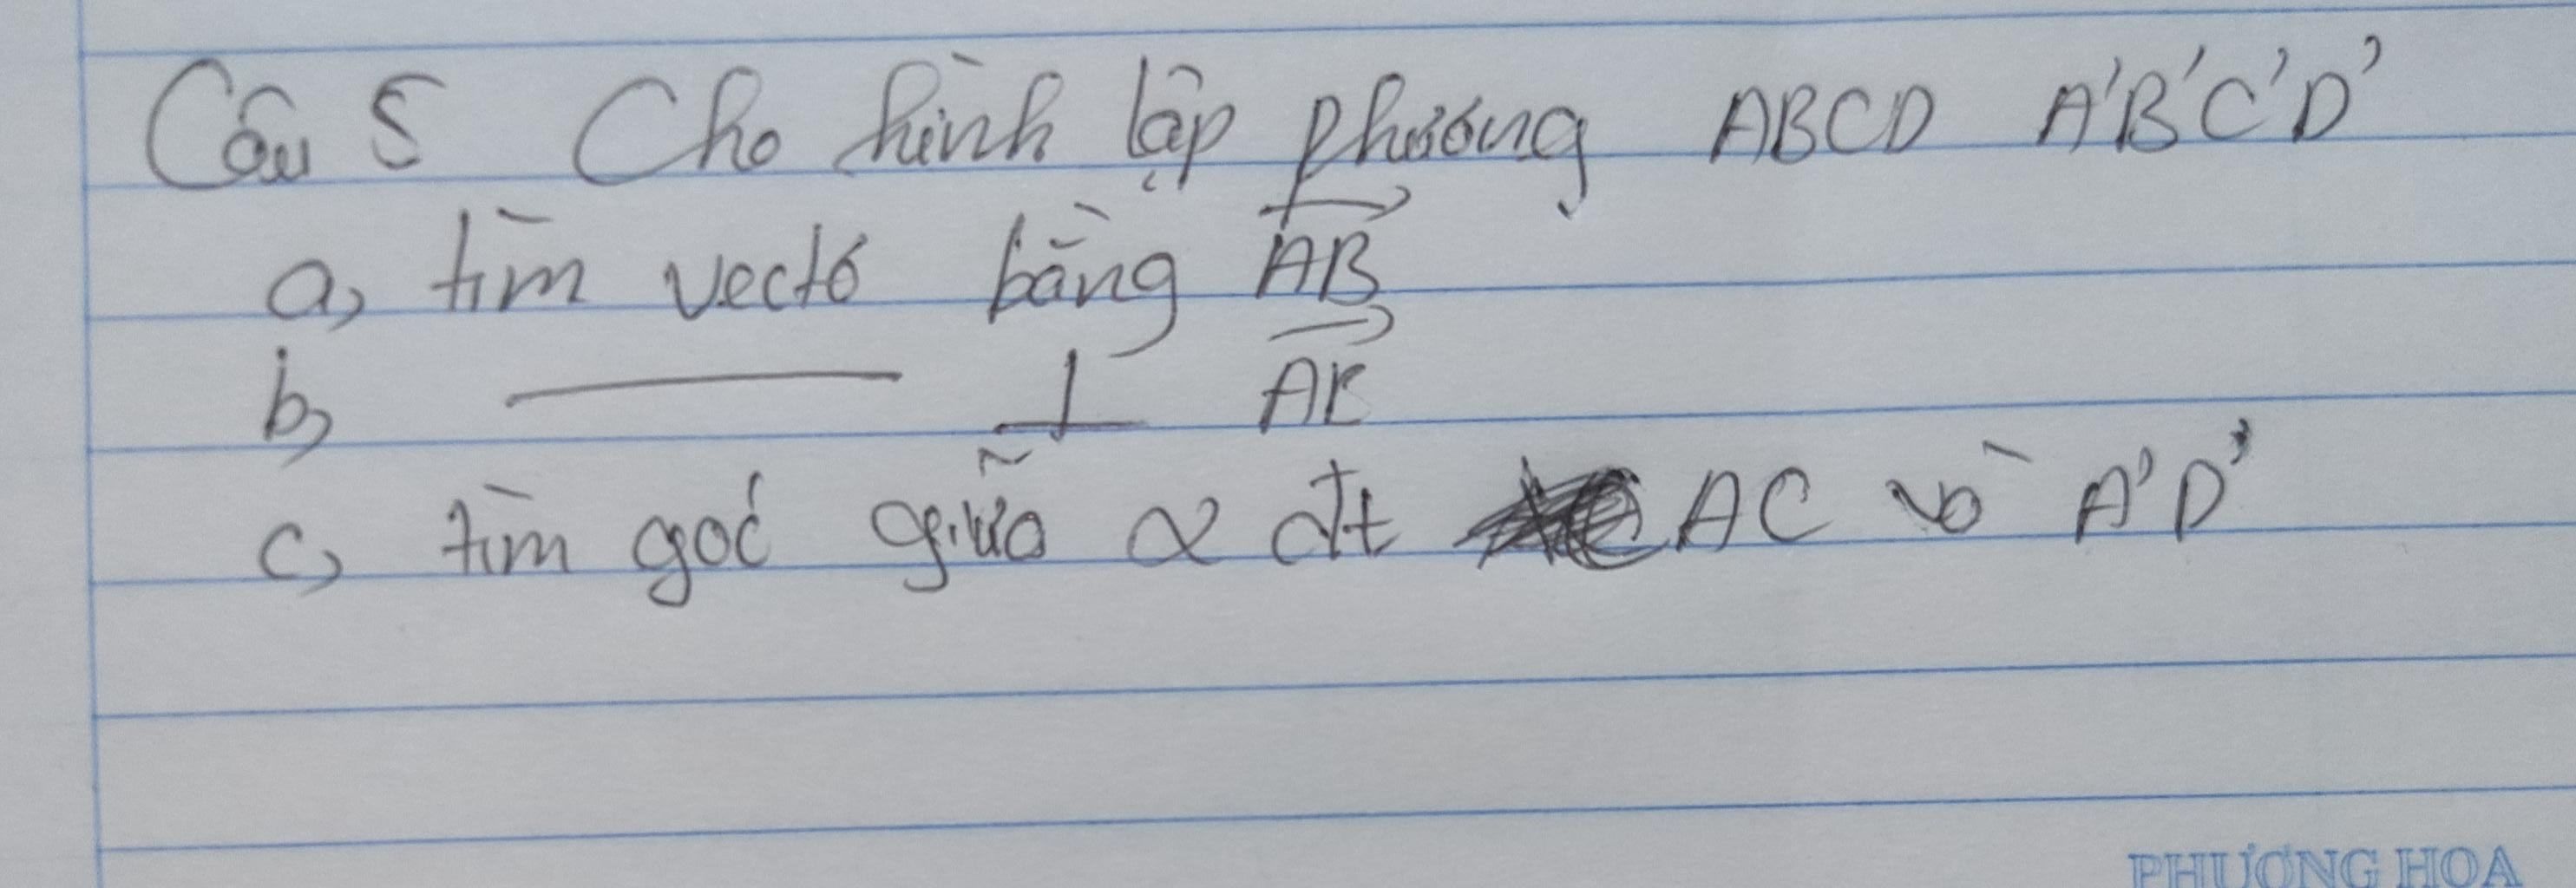 Câu 5 Cho hình lập phương ABCD A'B'C'D'
a, tìm vectơ bằng AB
b, ——— ⊥ AB
c, tìm góc giữa 2 đt AC và A'D'
PHƯƠNG HOA